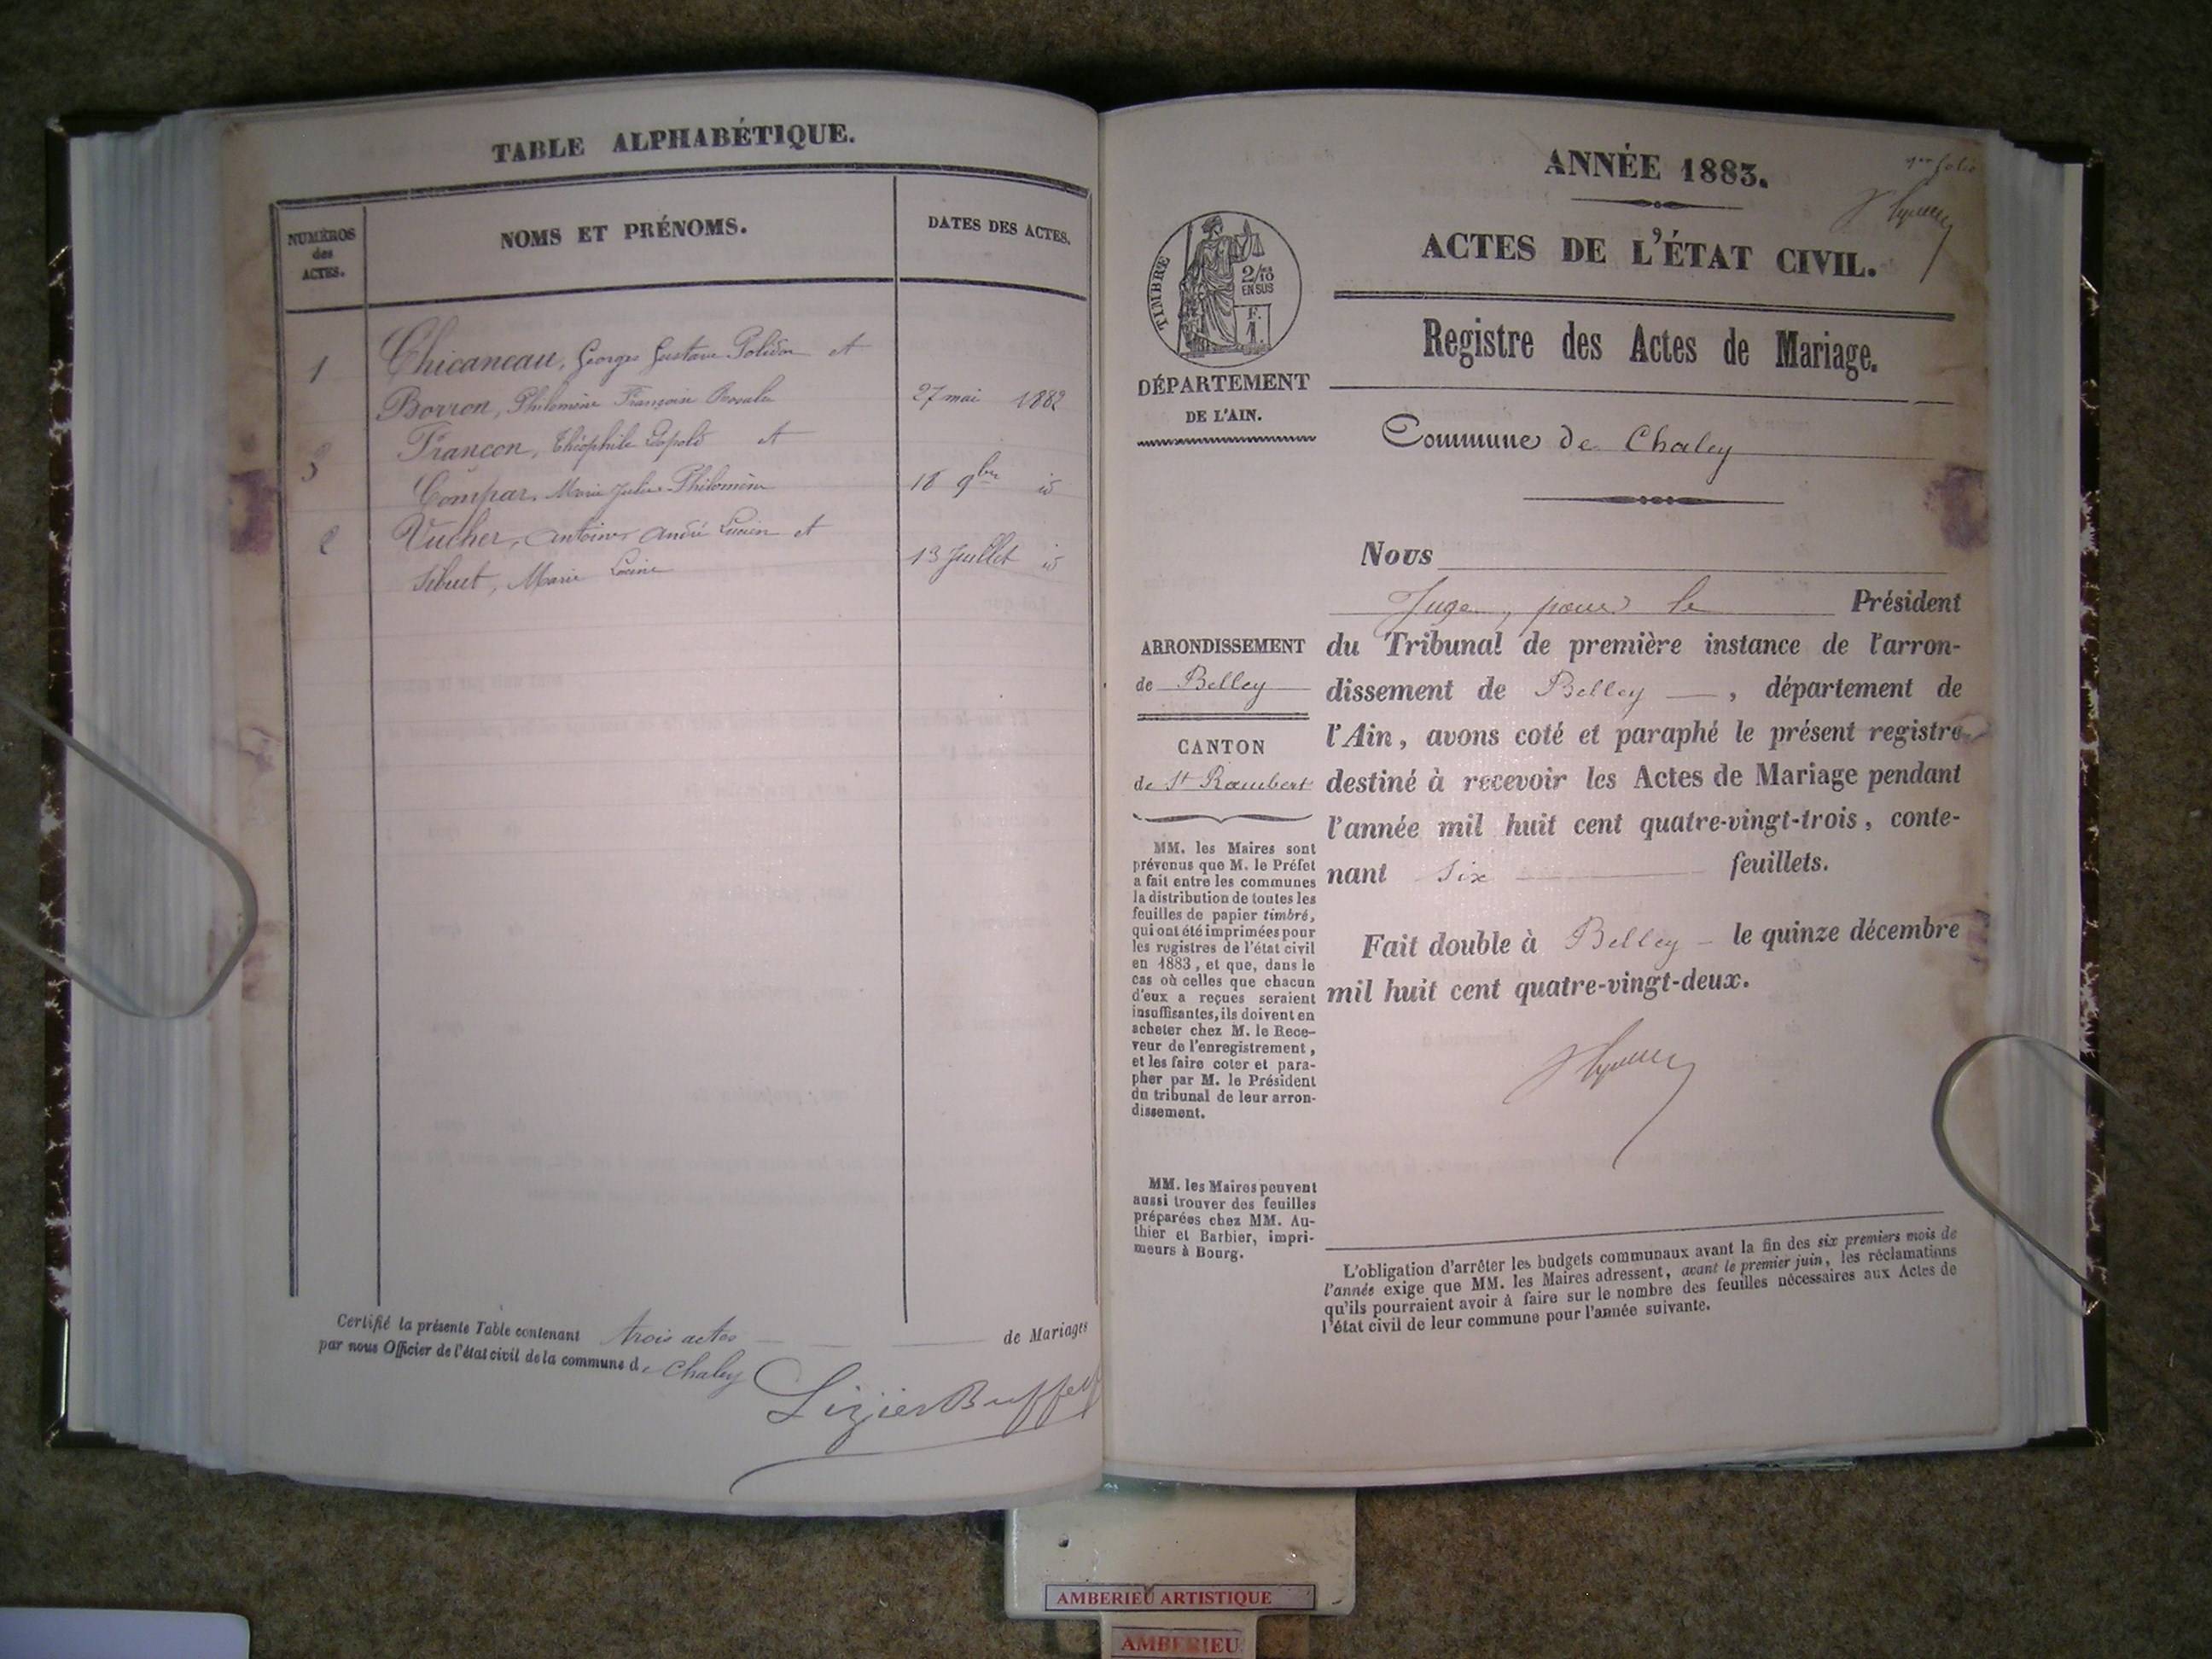 TABLE ALPHABÉTIQUE.
NUMÉROS
des
ACTES.
NOMS ET PRÉNOMS.
DATES DES ACTES.
1
Chicaneau, Georges Gustave Polidor et
Borron, Philomène Françoise Rosalie
27 mai 1882
3
Françon, Théophile Léopold et
Compar, Marie Julie Philomène
18 9bre id
2
Vucher, Antoine André Lucien et
Sibuet, Marie
13 Juillet id
Certifié la présente Table contenant trois actes de Mariages
par nous Officier de l'état civil de la commune de Chaley
Lizier Buffet
ANNÉE 1883.
1er folio
ACTES DE L'ÉTAT CIVIL.
TIMBRE
2/10
EN SUS
F.
1.
Registre des Actes de Mariage.
DÉPARTEMENT
DE L'AIN.
Commune de Chaley
Nous
Juge, pour le Président
du Tribunal de première instance de l'arron-
dissement de Belley, département de
l'Ain, avons coté et paraphé le présent registre
destiné à recevoir les Actes de Mariage pendant
l'année mil huit cent quatre-vingt-trois, conte-
nant six feuillets.
Fait double à Belley le quinze décembre
mil huit cent quatre-vingt-deux.
ARRONDISSEMENT
de Belley
CANTON
de St Rambert
MM. les Maires sont
prévenus que M. le Préfet
a fait entre les communes
la distribution de toutes les
feuilles de papier timbré,
qui ont été imprimées pour
les registres de l'état civil
en 1883, et que, dans le
cas où celles que chacun
d'eux a reçues seraient
insuffisantes, ils doivent en
acheter chez M. le Rece-
veur de l'enregistrement,
et les faire coter et para-
pher par M. le Président
du tribunal de leur arron-
dissement.
MM. les Maires peuvent
aussi trouver des feuilles
préparées chez MM. Au-
thier et Barbier, impri-
meurs à Bourg.
L'obligation d'arrêter les budgets communaux avant la fin des six premiers mois de
l'année exige que MM. les Maires adressent, avant le premier juin, les réclamations
qu'ils pourraient avoir à faire sur le nombre des feuilles nécessaires aux Actes de
l'état civil de leur commune pour l'année suivante.
AMBERIEU ARTISTIQUE
AMBERIEU